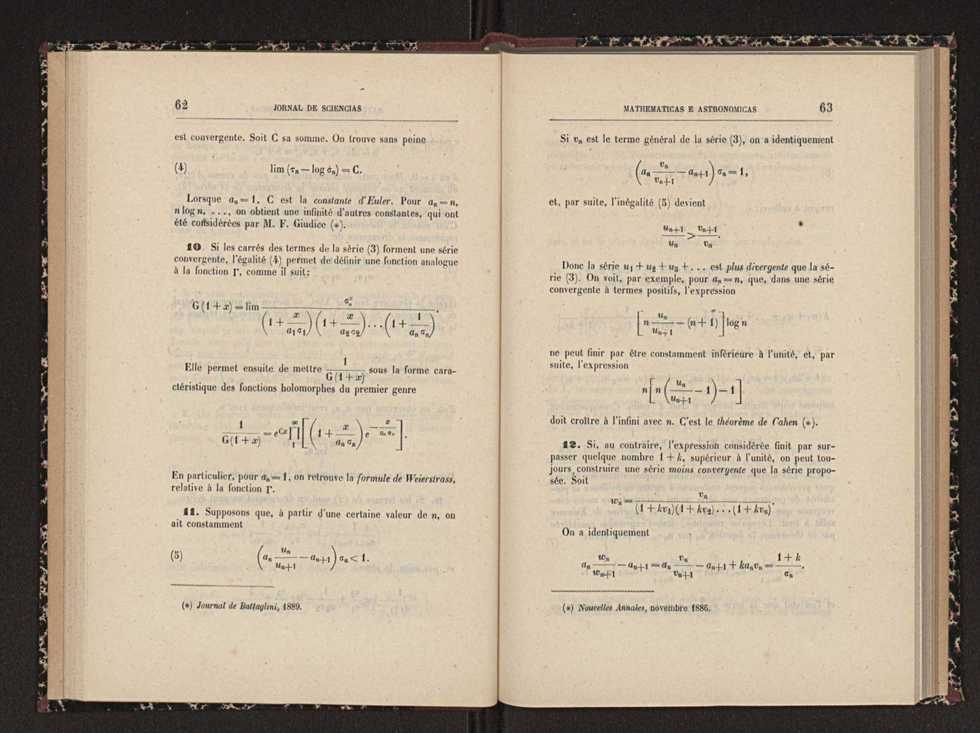 62 JORNAL DE SCIENCIAS
est convergente. Soit C sa somme. On trouve sans peine
(4) lim (τₙ — log σₙ) = C.
Lorsque aₙ = 1, C est la constante d'Euler. Pour aₙ = n,
n log n, ..., on obtient une infinité d'autres constantes, qui ont
été considérées par M. F. Giudice (*).
10. Si les carrés des termes de la série (3) forment une série
convergente, l'égalité (4) permet de définir une fonction analogue
à la fonction Γ, comme il suit:
G (1 + x) = lim σₙˣ / [(1 + x/(a₁σ₁)) (1 + x/(a₂σ₂)) ... (1 + x/(aₙσₙ))].
Elle permet ensuite de mettre 1/G(1 + x) sous la forme cara-
ctéristique des fonctions holomorphes du premier genre
1/G(1 + x) = e^{Cx} ∏₁^∞ [(1 + x/(aₙσₙ)) e^{−x/(aₙσₙ)}].
En particulier, pour aₙ = 1, on retrouve la formule de Weierstrass,
relative à la fonction Γ.
11. Supposons que, à partir d'une certaine valeur de n, on
ait constamment
(5) (aₙ uₙ/uₙ₊₁ — aₙ₊₁) σₙ < 1.
(*) Journal de Battaglini, 1889.
MATHEMATICAS E ASTRONOMICAS 63
Si vₙ est le terme général de la série (3), on a identiquement
(aₙ vₙ/vₙ₊₁ — aₙ₊₁) σₙ = 1,
et, par suite, l'inégalité (5) devient
uₙ₊₁/uₙ > vₙ₊₁/vₙ.
Donc la série u₁ + u₂ + u₃ + ... est plus divergente que la sé-
rie (3). On voit, par exemple, pour aₙ = n, que, dans une série
convergente à termes positifs, l'expression
[n uₙ/uₙ₊₁ — (n + 1)] log n
ne peut finir par être constamment inférieure à l'unité, et, par
suite, l'expression
n [n (uₙ/uₙ₊₁ — 1) — 1]
doit croître à l'infini avec n. C'est le théorème de Cahen (*).
12. Si, au contraire, l'expression considérée finit par sur-
passer quelque nombre 1 + k, supérieur à l'unité, on peut tou-
jours construire une série moins convergente que la série propo-
sée. Soit
wₙ = vₙ / [(1 + kv₁)(1 + kv₂) ... (1 + kvₙ)].
On a identiquement
aₙ wₙ/wₙ₊₁ — aₙ₊₁ = aₙ vₙ/vₙ₊₁ — aₙ₊₁ + kaₙvₙ = (1 + k)/σₙ.
(*) Nouvelles Annales, novembre 1886.